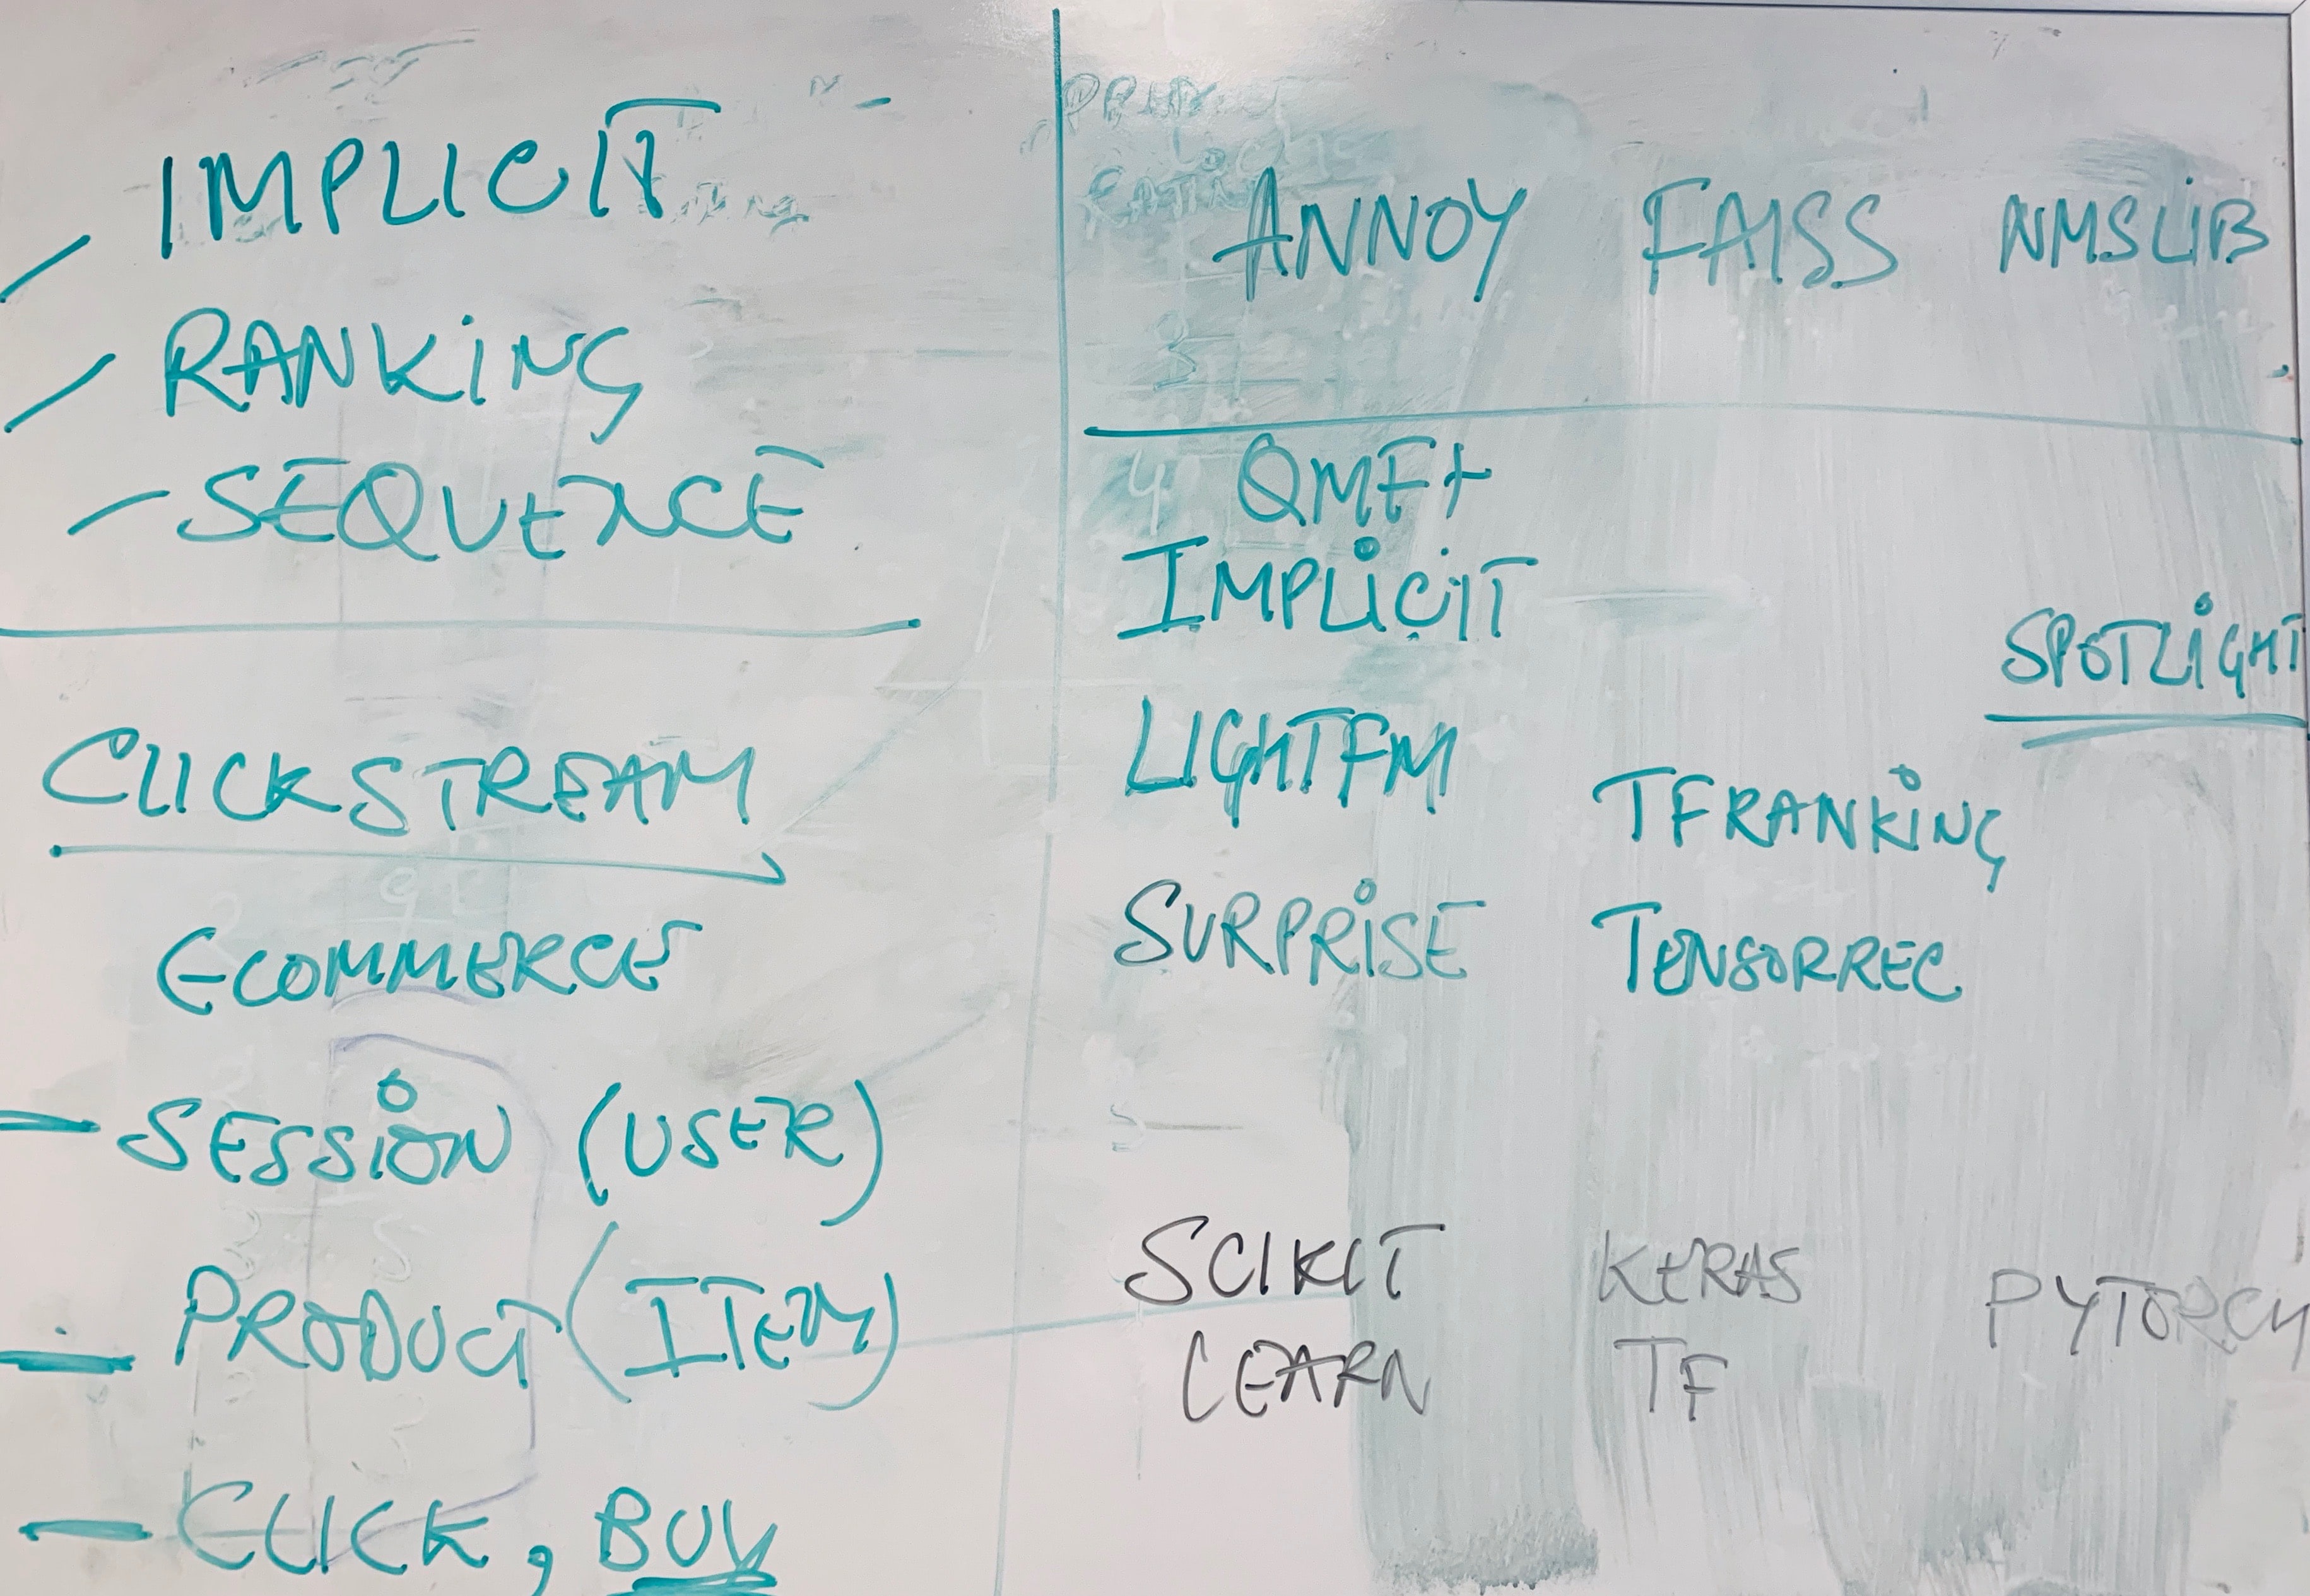 - IMPLICIT
- RANKING
- SEQUENCE
CLICKSTREAM
ECOMMERCE
- SESSION (USER)
- PRODUCT (ITEM)
- CLICK, BUY
ANNOY FAISS NMSLIB
QMF+
IMPLICIT
SPOTLIGHT
LIGHTFM
TFRANKING
SURPRISE TENSORREC
SCIKIT KERAS PYTORCH
LEARN TF